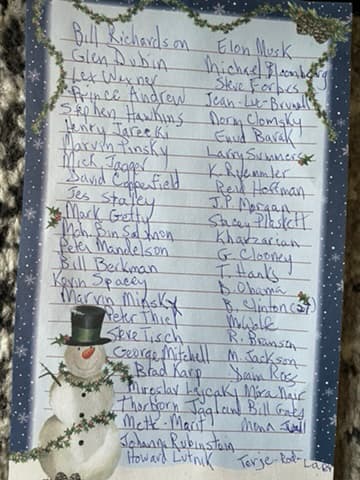 Bill Richardson Elon Musk
Glen Dubin Michael Bloomberg
Lex Wexner Steve Forbes
Prince Andrew Jean-Luc-Brunell
Stephen Hawkins Norm Clomsky
Henry Jarecki Enud Barak
Marvin Pinsky Larry Summers
Mick Jagger K. Ryemmler
David Copperfield Reid Hoffman
Jes Staley J.P. Morgan
Mark Getty Stacey Plaskett
Moh Bin Salmnon Kharzarian
Peter Mandelson G. Clooney
Bill Berkman T. Hanks
Kevin Spacey B. Obama
Marvin Minsky B. Clinton
Peter Thiel
Steve Tisch R. Branson
George Mitchell M. Jackson
Brad Karp Ross
Miroslav Lajcaky Mira Nair
Thorbjorn Jagland Bill Gates
Mette-Marit Mona Juul
Johanna Rubinstein
Howard Lutnik Terje-Rod-Larsen